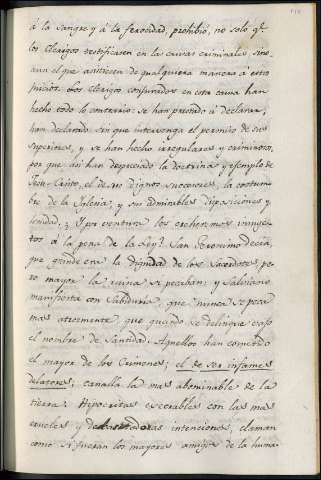 á la sangre y á la ferocidad, prohibió, no solo q.e
los Clerigos testificasen en las causas criminales, sino
aun el que asistiesen de qualquiera manera á estos
juicios. Los Clerigos conjurados en esta causa han
hecho todo lo contrario: se han prestado á declarar,
han declarado sin que intervenga el permiso de sus
superiores, y se han hecho irregulares y criminosos,
por que asi han despreciado la doctrina y exemplo de
Jesu-Cristo, el de sus dignos sucesores, la costum-
bre de la Iglesia, y sus admirables disposiciones y
lenidad. ¿Y por ventura los creheremos inmuges
tos á la pena de la Ley? San Geronimo decia,
que grande era la dignidad de los Sacerdotes, pe-
ro mayor la ruina si pecaban: y Salviano
manifiesta con Sabiduria, que nunca se peca
mas atrozmente que quando se delinque vajo
el nombre de Santidad. Aquellos han cometido
el mayor de los Crimenes; el de ser infames
delatores; canalla la mas abominable de la
tierra: Hipocritas execrables con las mas
crueles y intenciones, claman
como si fueran los mayores amigos de la huma-